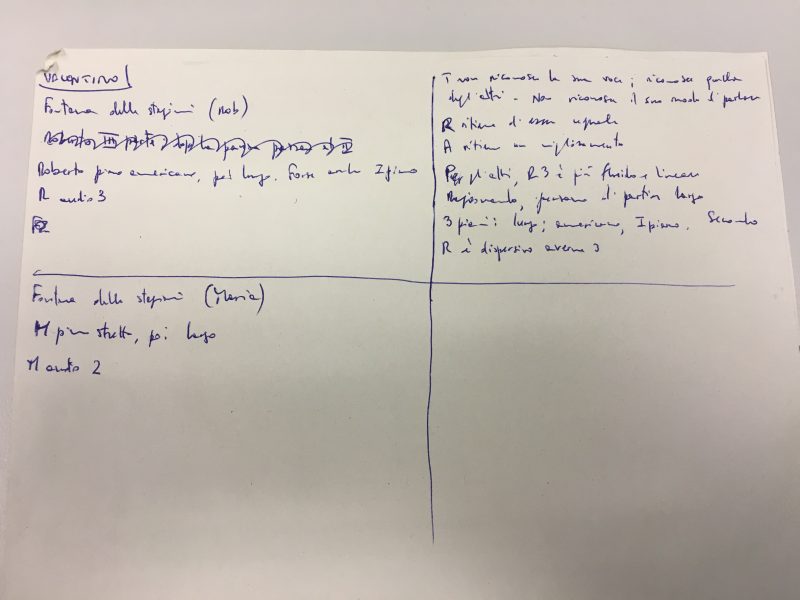 VALENTINO
Fontana delle stagioni (Rob)
Roberto III parte dopo la pausa passa a IV
Roberto piano americano, poi lungo. Forse anche I piano
R audio 3
T non riconosce la sua voce; riconosce quella
degli altri. Non riconosce il suo modo di parlare
R ritiene di essere uguale
A ritiene un miglioramento
Per gli altri, R3 è più fluido e lineare
Ragionando, pensano di partire largo
3 piani: lungo; americano, I piano. Secondo
R è dispersivo averne 3
Fontana delle stagioni (Maria)
M piano stretto, poi largo
M audio 2